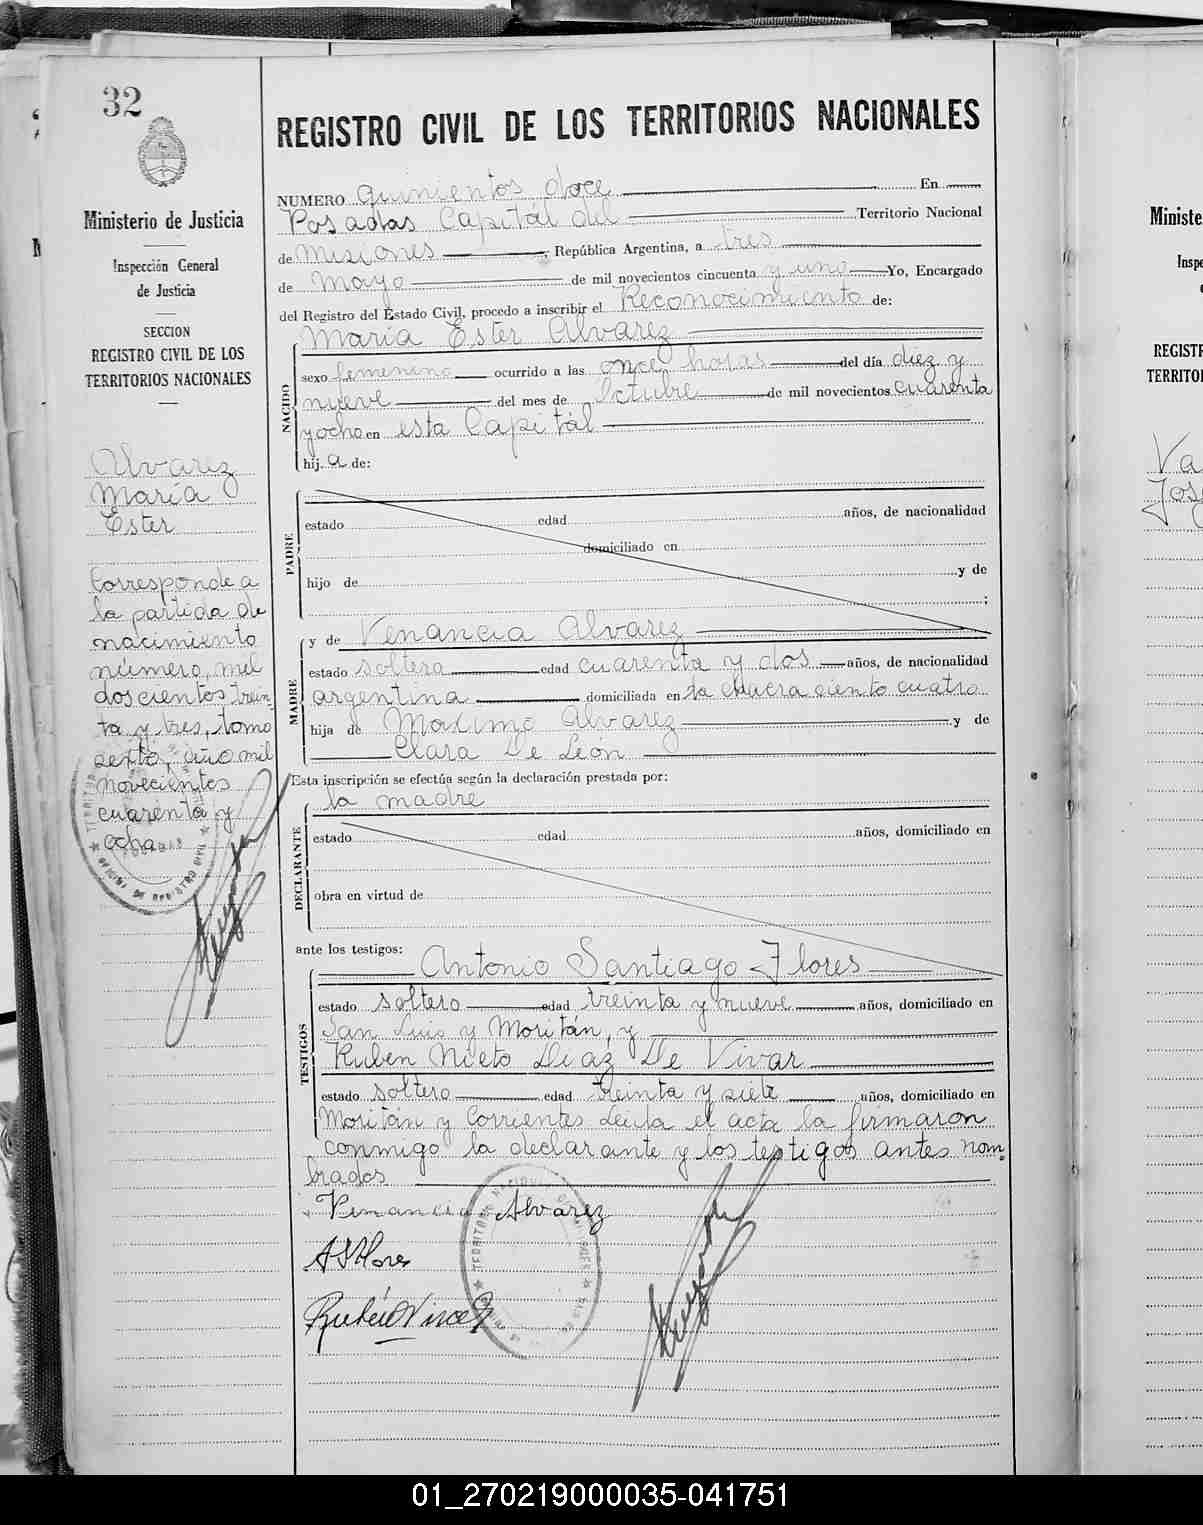 32
Ministerio de Justicia
Inspección General
de Justicia
SECCION
REGISTRO CIVIL DE LOS
TERRITORIOS NACIONALES
Alvarez
María
Ester
Corresponde a
la partida de
nacimiento
número, mil
doscientos trein
ta y tres, tomo
sexto, año mil
novecientos
cuarenta y
ocho
REGISTRO CIVIL DE LOS TERRITORIOS NACIONALES
NUMERO quinientos doce En
Posadas Capitál del Territorio Nacional
de Misiones , República Argentina, a tres
de Mayo de mil novecientos cincuenta y uno Yo, Encargado
del Registro del Estado Civil, procedo a inscribir el Reconocimiento de:
María Ester Alvarez
NACIDO
sexo femenino ocurrido a las once horas del día diez y
nueve del mes de Octubre de mil novecientos cuarenta
y ocho en esta Capitál
hij a de:
PADRE
estado edad años, de nacionalidad
domiciliado en
hijo de y de
;
MADRE
y de Venancia Alvarez
estado soltera edad cuarenta y dos años, de nacionalidad
argentina domiciliada en la chacra ciento cuatro
hija de Maximo Alvarez y de
Clara De León
Esta inscripción se efectúa según la declaración prestada por:
la madre
DECLARANTE
estado edad años, domiciliado en
obra en virtud de
ante los testigos:
Antonio Santiago Flores
TESTIGOS
estado soltero edad treinta y nueve años, domiciliado en
San Luis y Moritán, y
Ruben Nieto Diaz De Vivar
estado soltero edad treinta y siete años, domiciliado en
Moritán y Corrientes Leida el acta la firmaron
conmigo la declarante y los testigos antes nom-
brados
Venancia Alvarez
A S Flores
Ministe
Inspe
REGISTR
TERRITOR
Va
Jos
01_270219000035-041751